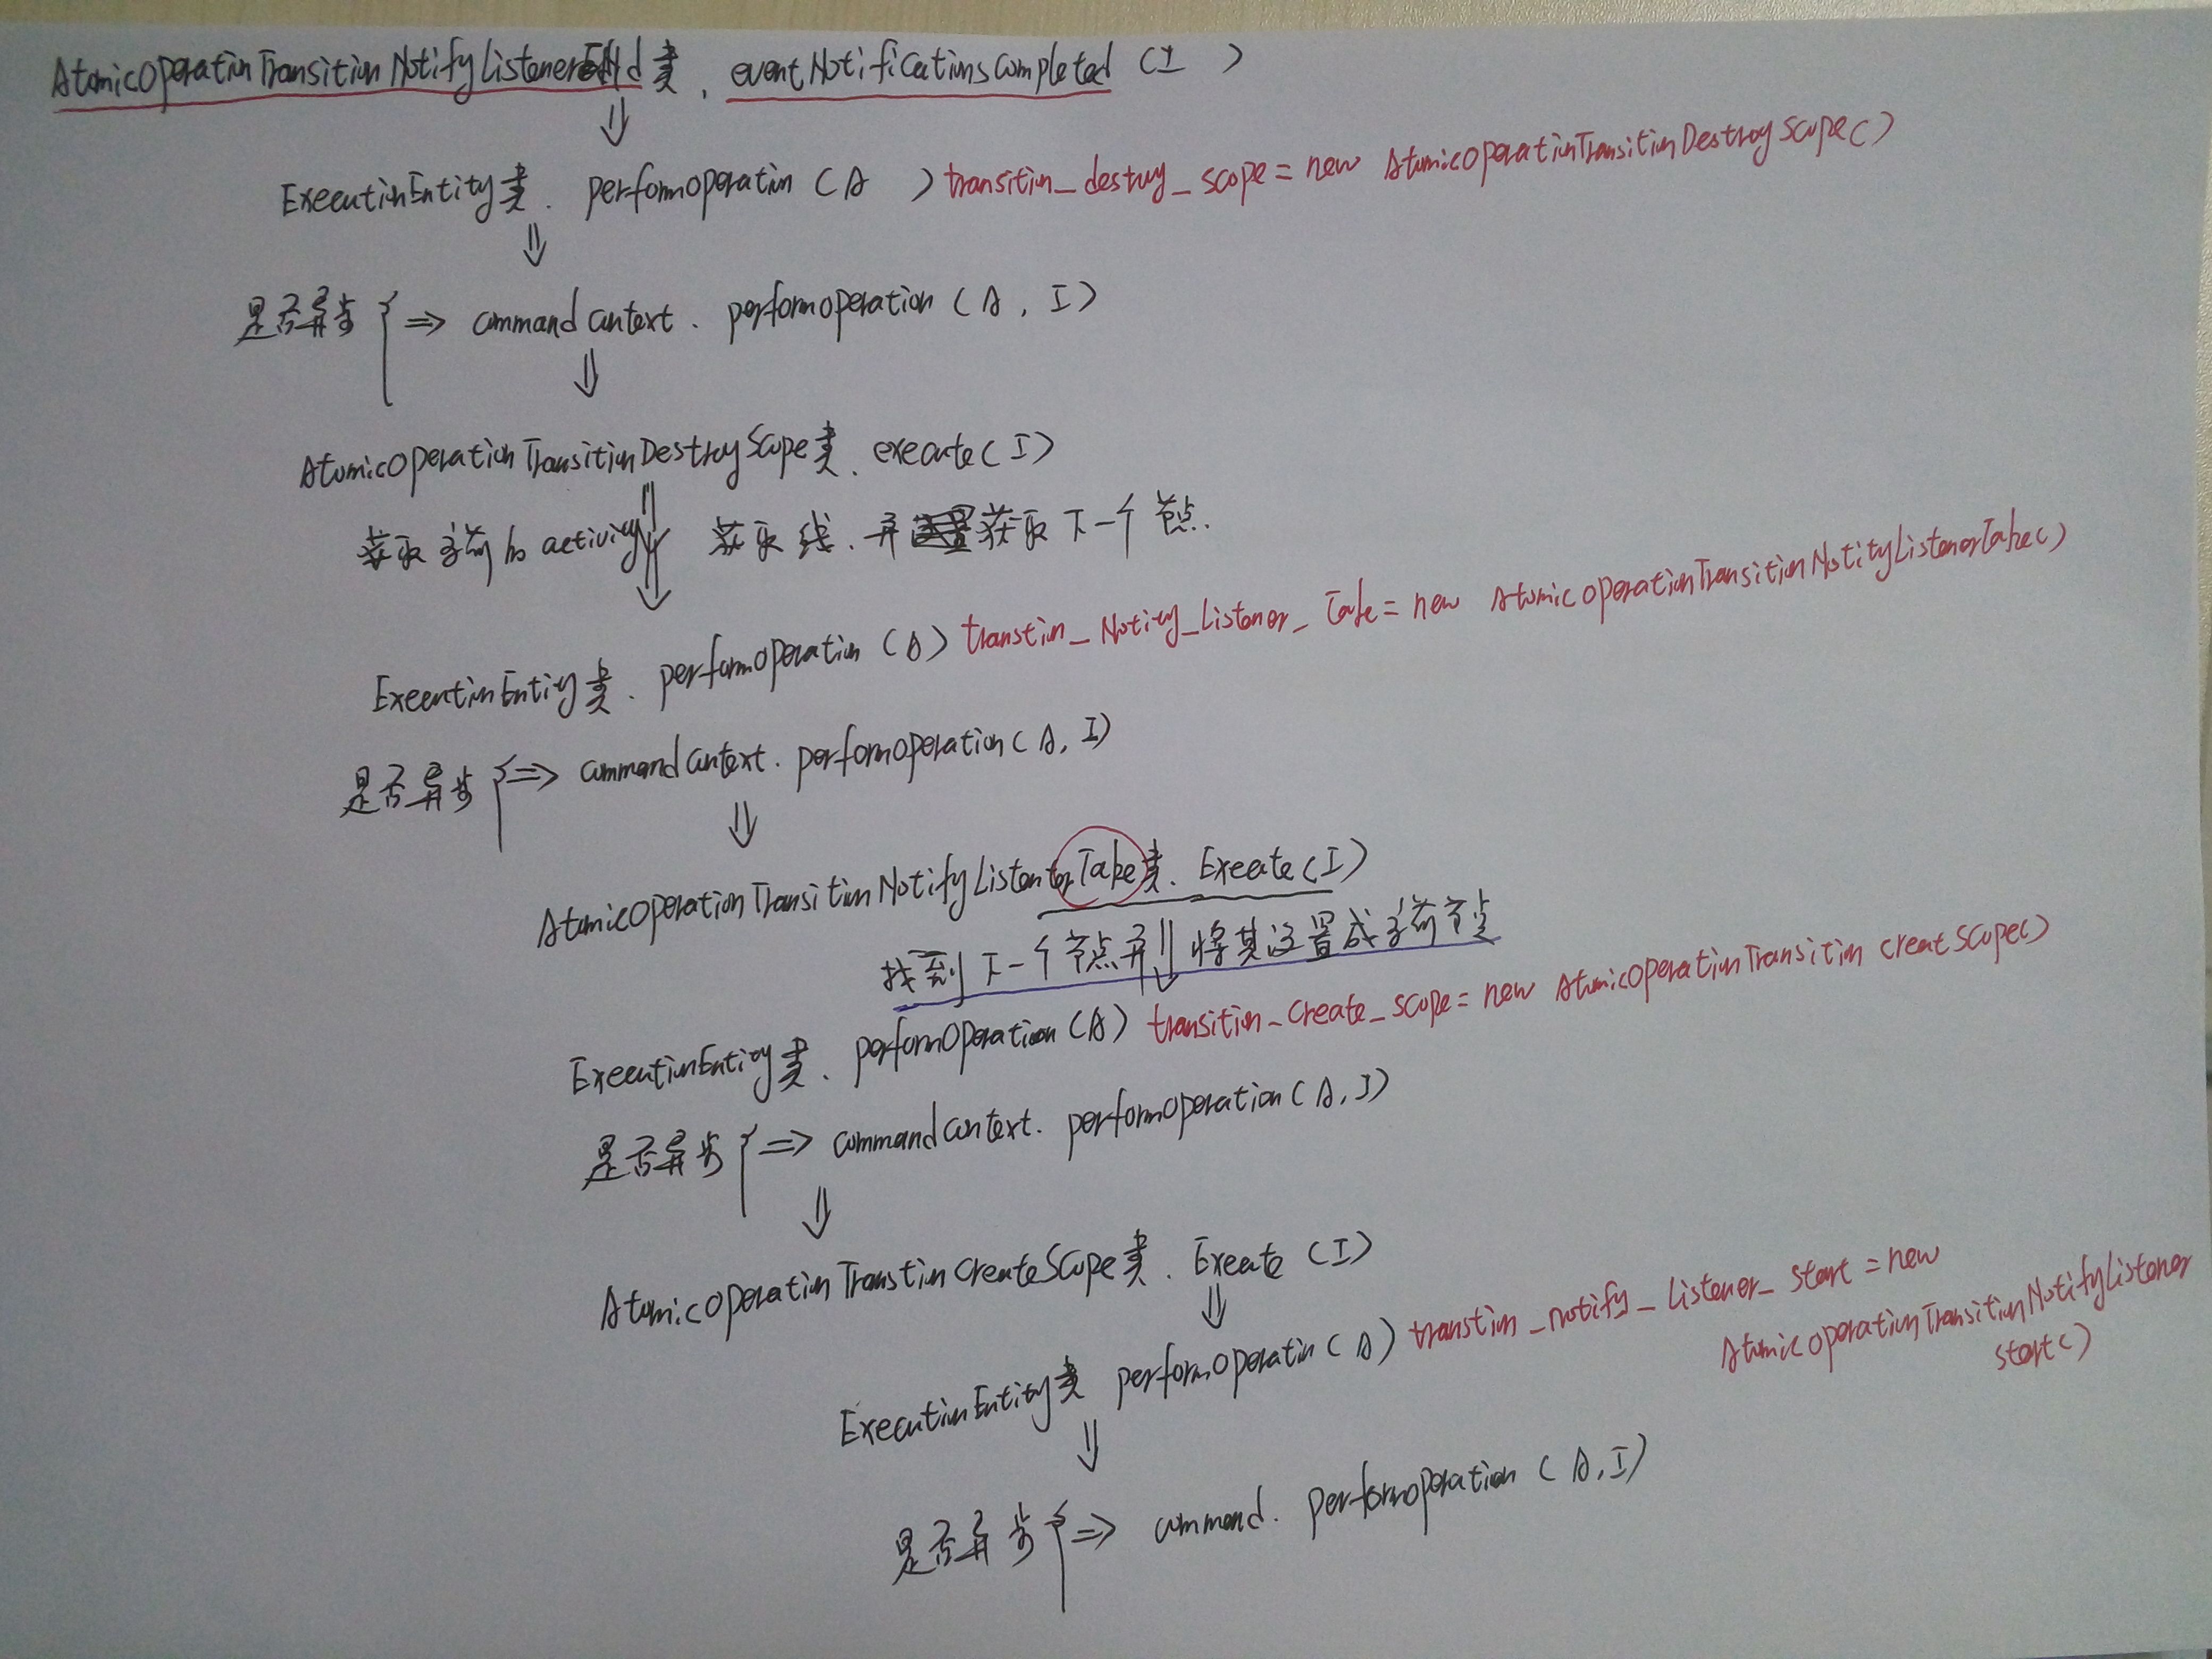 AtomicOperationTransitionNotifyListenerEnd类. eventNotificationsCompleted (I )
⇓
ExecutionEntity类. performOperation (A ) transition_destroy_scope = new AtomicOperationTransitionDestroyScope()
⇓
是否异步 { ⇒ commandContext. performOperation (A, I)
⇓
AtomicOperationTransitionDestroyScope类. execute(I)
获取当前的activity 获取线. 并获取下一个节点.
⇓
ExecutionEntity类. performOperation (A) transtion_Notity_Listener_Take = new AtomicOperationTransitionNotityListenerTake()
是否异步 { ⇒ commandContext. performOperation(A, I)
⇓
AtomicOperationTransitionNotifyListenterTake类. Execute(I)
找到下一个节点并将其设置成当前节点
⇓
ExecutionEntity类. performOperation(A) transition_create_scope = new AtomicOperationTransition creatScope()
是否异步 { ⇒ commandContext. performOperation(A, I)
⇓
AtomicOperationTranstionCreateScope类. Execute (I)
⇓
ExecutionEntity类 performOperation(A) transtion_notify_Listener_start = new
AtomicOperationTransitionNotifyListener
start()
⇓
是否异步 { ⇒ command. performOperation (A, I)